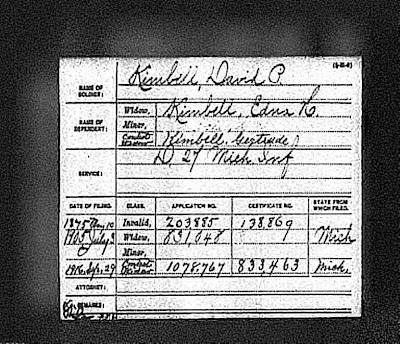 (3-31-8)
NAME OF SOLDIER: Kimbell, David P.
NAME OF DEPENDENT: Widow, Kimbell, Edna R.
Minor,
Contest Widow Kimbell, Gertrude
SERVICE: D. 27 Mich. Inf
DATE OF FILING. CLASS. APPLICATION NO. CERTIFICATE NO. STATE FROM WHICH FILED.
1875 May 10 Invalid, 203,885 138,869
1905 July 3 Widow, 831,848 Mich
Minor,
1916 Sep. 29 Contest Widow 1078,767 833,463 Mich.
ATTORNEY:
REMARKS: